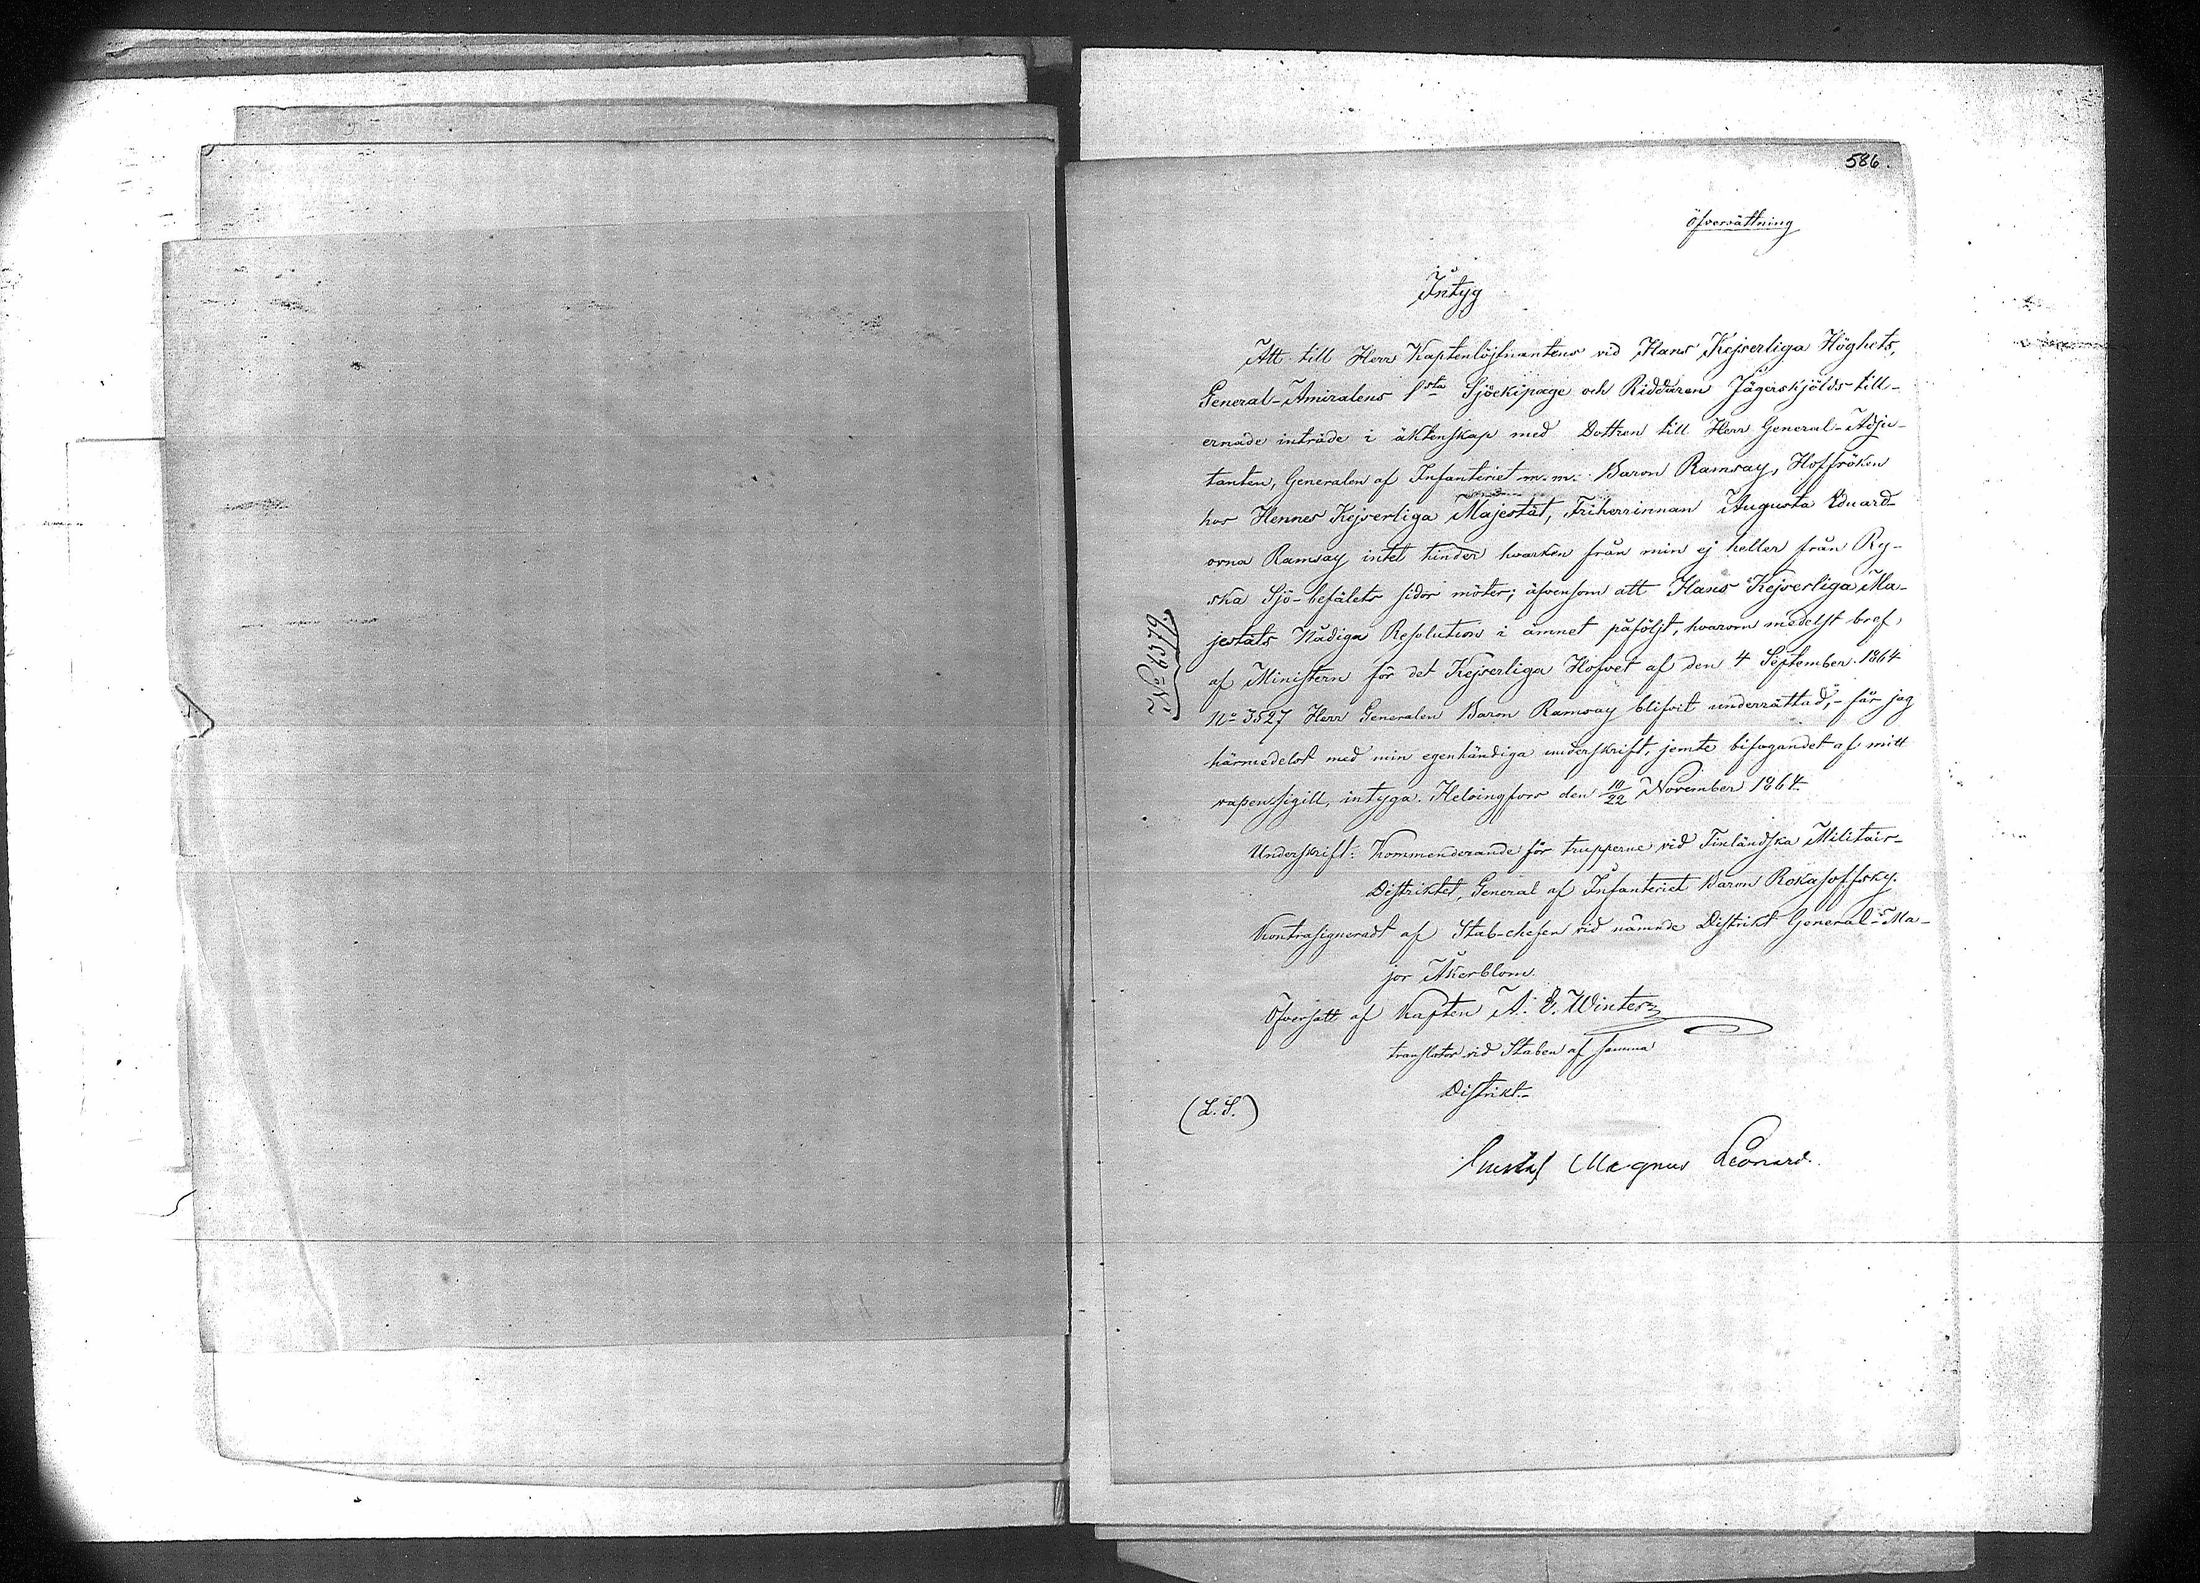 586.
Öfversättning
Intyg
Att till Herr Kaptenlöjtnantens vid Hans Kejserliga Höghets,
General-Amiralens 1sta Sjöekipage och Riddaren Jägerskjölds till-
ernade inträde i äktenskap med Dottren till Herr General-Adju-
tanten, Generalen af Infanteriet m.m. Baron Ramsay, Hoffröken
hos Hennes Kejserliga Majestät, Friherrinnan Augusta Eduard-
ovna Ramsay intet hinder hvarken från min ej heller från Ry-
ska Sjö-befälets sidor möter; äfvensom att Hans Kejserliga Ma-
jestäts Nådiga Resolution i ämnet påföljt, hvarom medelst bref,
af Ministern för det Kejserliga Hofvet af den 4 September 1864
No 3527 Herr Generalen Baron Ramsay blifvit underrättad;- får jag
härmedelst med min egenhändiga underskrift, jemte bifogandet af mitt
vapensigill, intyga. Helsingfors den 10/22 November 1864.
No 6379.
Underskrift: Kommenderande för trupperne vid Finländska Militair-
Distriktet, General af Infanteriet Baron Rokasoffsky.
Kontrasigneradt af Stab-chefen vid nämnde Distrikt General-Ma-
jor Åkerblom.
Öfversatt af Kapten A. E. Winter
translator vid Staben af samma
Distrikt.-
(L.S.)
Gustaf Magnus Leonard.